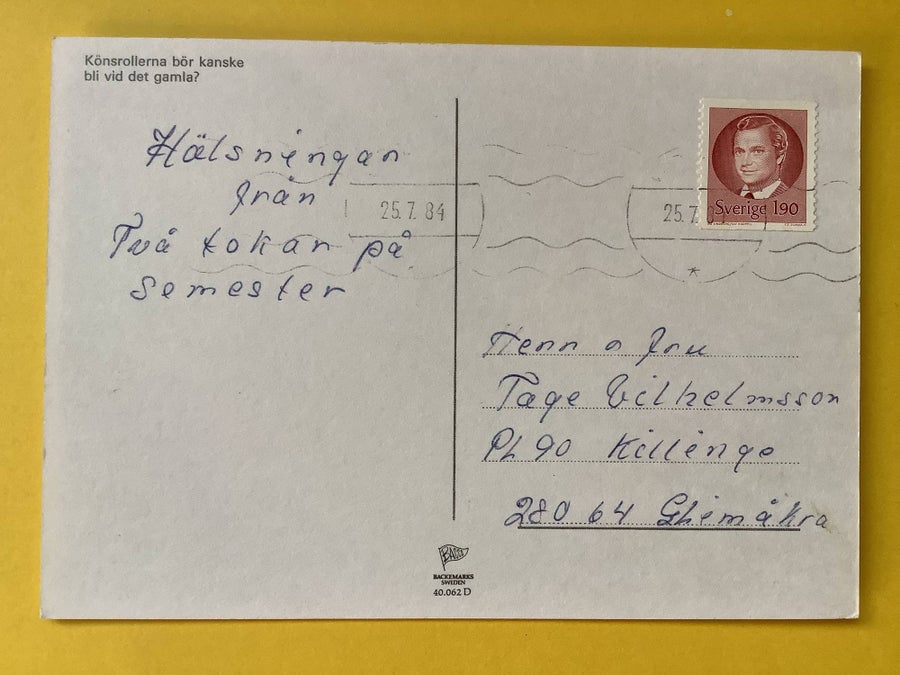 Könsrollerna bör kanske
bli vid det gamla?
Hälsningar
från
Två tokar på
semester
25.7.84
25.7.
Sverige 190
Herr o fru
Tage Vilhelmsson
PL 90 Killinge
280 64 Glimåkra
BACKEMARKS
SWEDEN
40.062 D